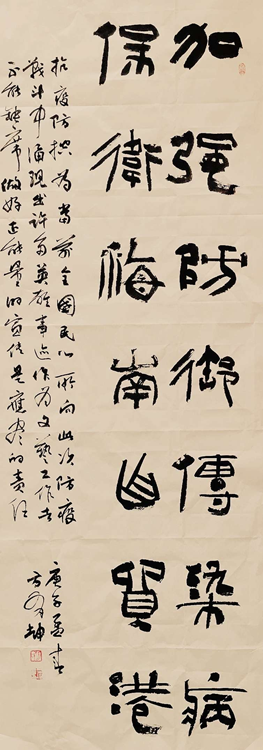 加強防御傳染病
保衛海南自貿港
抗疫防控為當前全國民心所向此次防疫
戰斗中涌現出許多英雄事迹作為文藝工作者
不能缺席做好正能量的宣傳是應盡的責任
庚子孟春